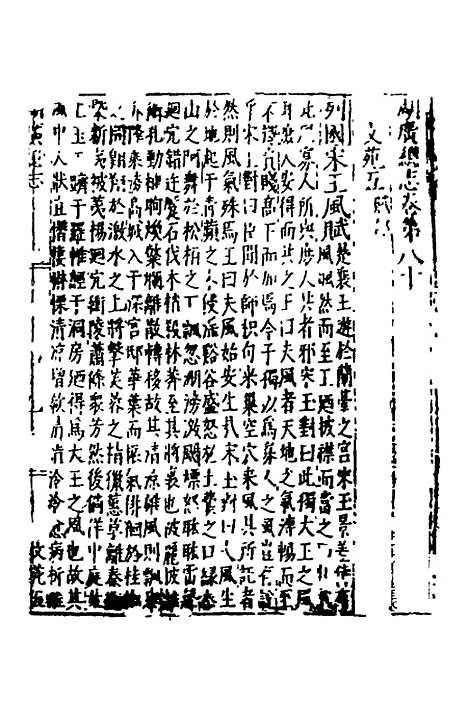 湖廣總志卷第八十
文苑五
列國宋玉風賦楚襄王遊於蘭臺之宮宋玉景差侍有
風颯然而至王迺披襟而當之曰快哉
此風寡人所與庶人共者邪宋玉對曰此獨大王之風
耳庶人安得而共之王曰夫風者天地之氣溥暢而至
不擇貴賤高下而加焉今子獨以為寡人之風豈有
乎宋玉對曰臣聞於師枳句來巢空穴來風其所託者
然則風氣殊焉王曰夫風始安生哉宋玉對曰夫風生
於地起于青蘋之末侵淫谿谷盛怒於土囊之口緣泰
山之阿舞於松柏之下飄忽淜滂激颺熛怒耾耾雷聲
迴穴錯迕蹷石伐木梢殺林莽至其將衰也被麗披離
衝孔動楗眴煥粲爛離散轉移故其清凉雄風則飄舉
升降乘凌高城入于深宮邸華葉而振氣徘徊於桂椒
之間翱翔於激水之上將擊芙蓉之精獵蕙草離秦蘅
槩新夷被荑楊迴穴衝陵蕭條衆芳然後倘佯中庭北
上玉堂躋于羅帷經于洞房迺得為大王之風也故其
風中人狀直憯悽惏慄清凉增欷清清冷冷愈病析酲
湖廣總志
文苑五